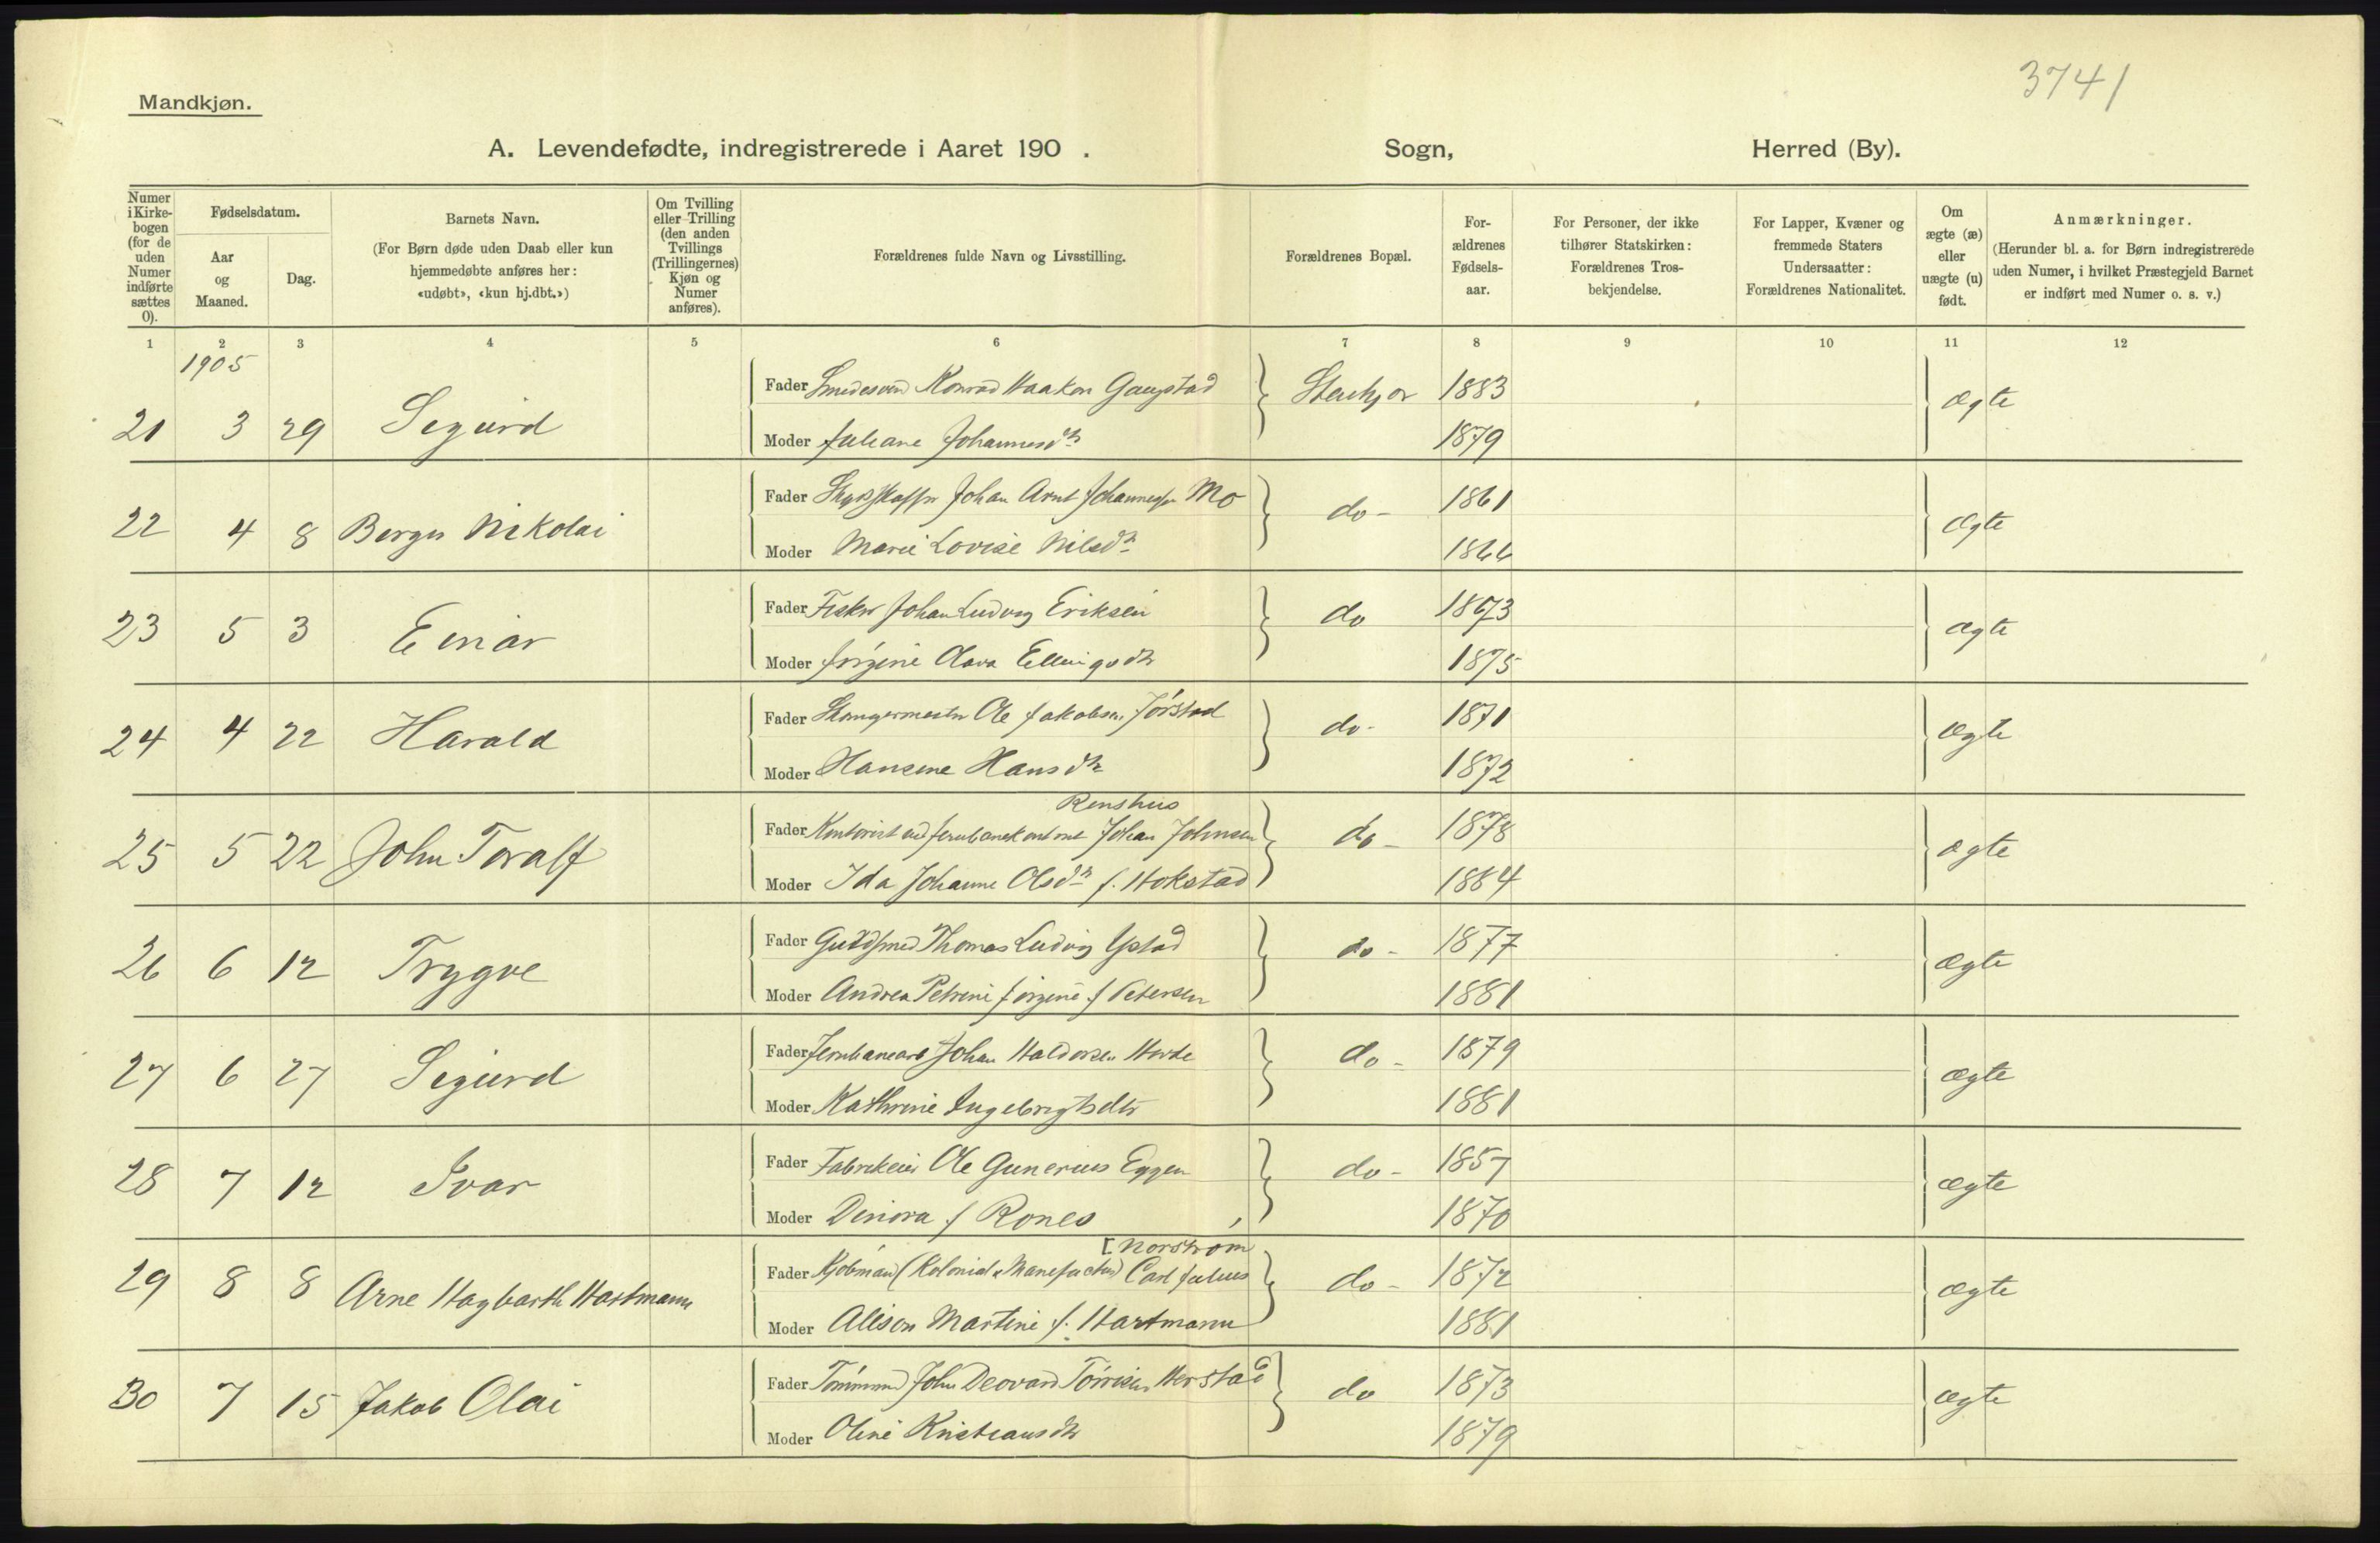 3741
Mandkjøn.
A. Levendefødte, indregistrerede i Aaret 190 . Sogn, Herred (By).
Numer i Kirkebogen (for de uden Numer indførte sættes 0).
Fødselsdatum.
Aar og Maaned.
Dag.
Barnets Navn.
(For Børn døde uden Daab eller kun hjemmedøbte anføres her: «udøbt», «kun hj.dbt.»)
Om Tvilling eller Trilling (den anden Tvillings (Trillingernes) Kjøn og Numer anføres).
Forældrenes fulde Navn og Livsstilling.
Forældrenes Bopæl.
Forældrenes Fødselsaar.
For Personer, der ikke tilhører Statskirken: Forældrenes Trosbekjendelse.
For Lapper, Kvæner og fremmede Staters Undersaatter: Forældrenes Nationalitet.
Om ægte (æ) eller uægte (u) født.
Anmærkninger.
(Herunder bl. a. for Børn indregistrerede uden Numer, i hvilket Præstegjeld Barnet er indført med Numer o. s. v.)
1 2 3 4 5 6 7 8 9 10 11 12
1905
21 3 29 Sigurd
Fader Smedesvend Konrad Haakon Gaupstad Stenkjær 1883 ægte
Moder Juliane Johannesdtr 1879
22 4 8 Berger Nikolai
Fader Skydsskaffer Johan Arnt Johannessen Mo do - 1861 ægte
Moder Marie Lovise Nilsdtr 1866
23 5 3 Einar
Fader Fisker Johan Ludvig Eriksen do 1873 ægte
Moder Jørgine Olava Ellingsdtr 1875
24 4 22 Harald
Fader Ole Jakobsen Jørstad do - 1871 ægte
Moder Hansine Hansdtr 1872
25 5 22 John Toralf
Renshus
Fader Kontorist ved Jernbanekontoret Johan Johnsen do - 1878 ægte
Moder Ida Johanne Olsdtr f. Hokstad 1884
26 6 12 Trygve
Fader Guldsmed Thomas Ludvig Ystad do - 1877 ægte
Moder Andrea Petrine Jørgine f Petersen 1881
27 6 27 Sigurd
Fader Jernbanearb Johan Haldorsen do - 1879 ægte
Moder Kathrine Ingebrigtsdtr 1881
28 7 12 Ivar
Fader Fabrikeier Ole Gunerius Eggen do - 1857 ægte
Moder Dinora f Rones 1870
29 8 8 Arne Hagbarth Hartmann
[Norstrøm
Fader Kjøbmand (Kolonial & Manufactur) Carl Julius do - 1872 ægte
Moder Alison Martine f. Hartmann 1881
30 7 15 Jakob Olai
Fader Tømmermd John Deovard Tørrisen Herstad do 1873 ægte
Moder Oline Kristiansdtr 1879